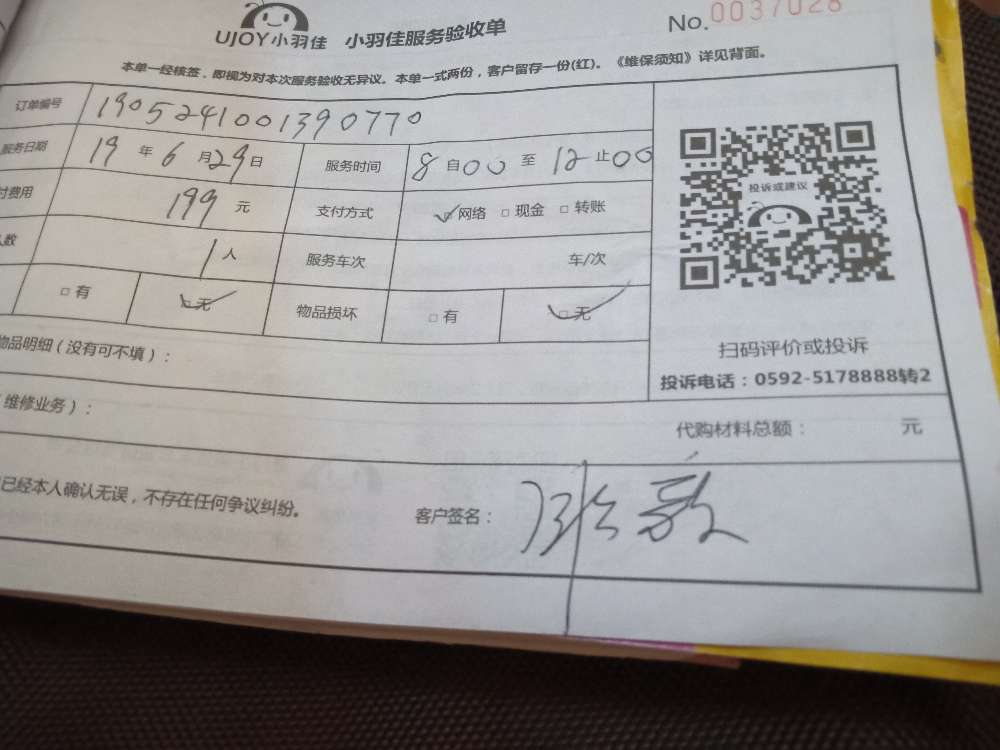 UJOY小羽佳 小羽佳服务验收单 No.0037028
本单一经核签，即视为对本次服务验收无异议。本单一式两份，客户留存一份(红)。《维保须知》详见背面。
订单编号 1905241001390770
服务日期 19 年 6 月 29 日 服务时间 8 自 00 至 12 止 00
付费用 199 元 支付方式 网络 现金 转账
人数 1 人 服务车次 车/次
有 无 物品损坏 有 无
投诉或建议
扫码评价或投诉
投诉电话：0592-5178888转2
物品明细（没有可不填）：
（维修业务）：
代购材料总额： 元
已经本人确认无误，不存在任何争议纠纷。 客户签名：